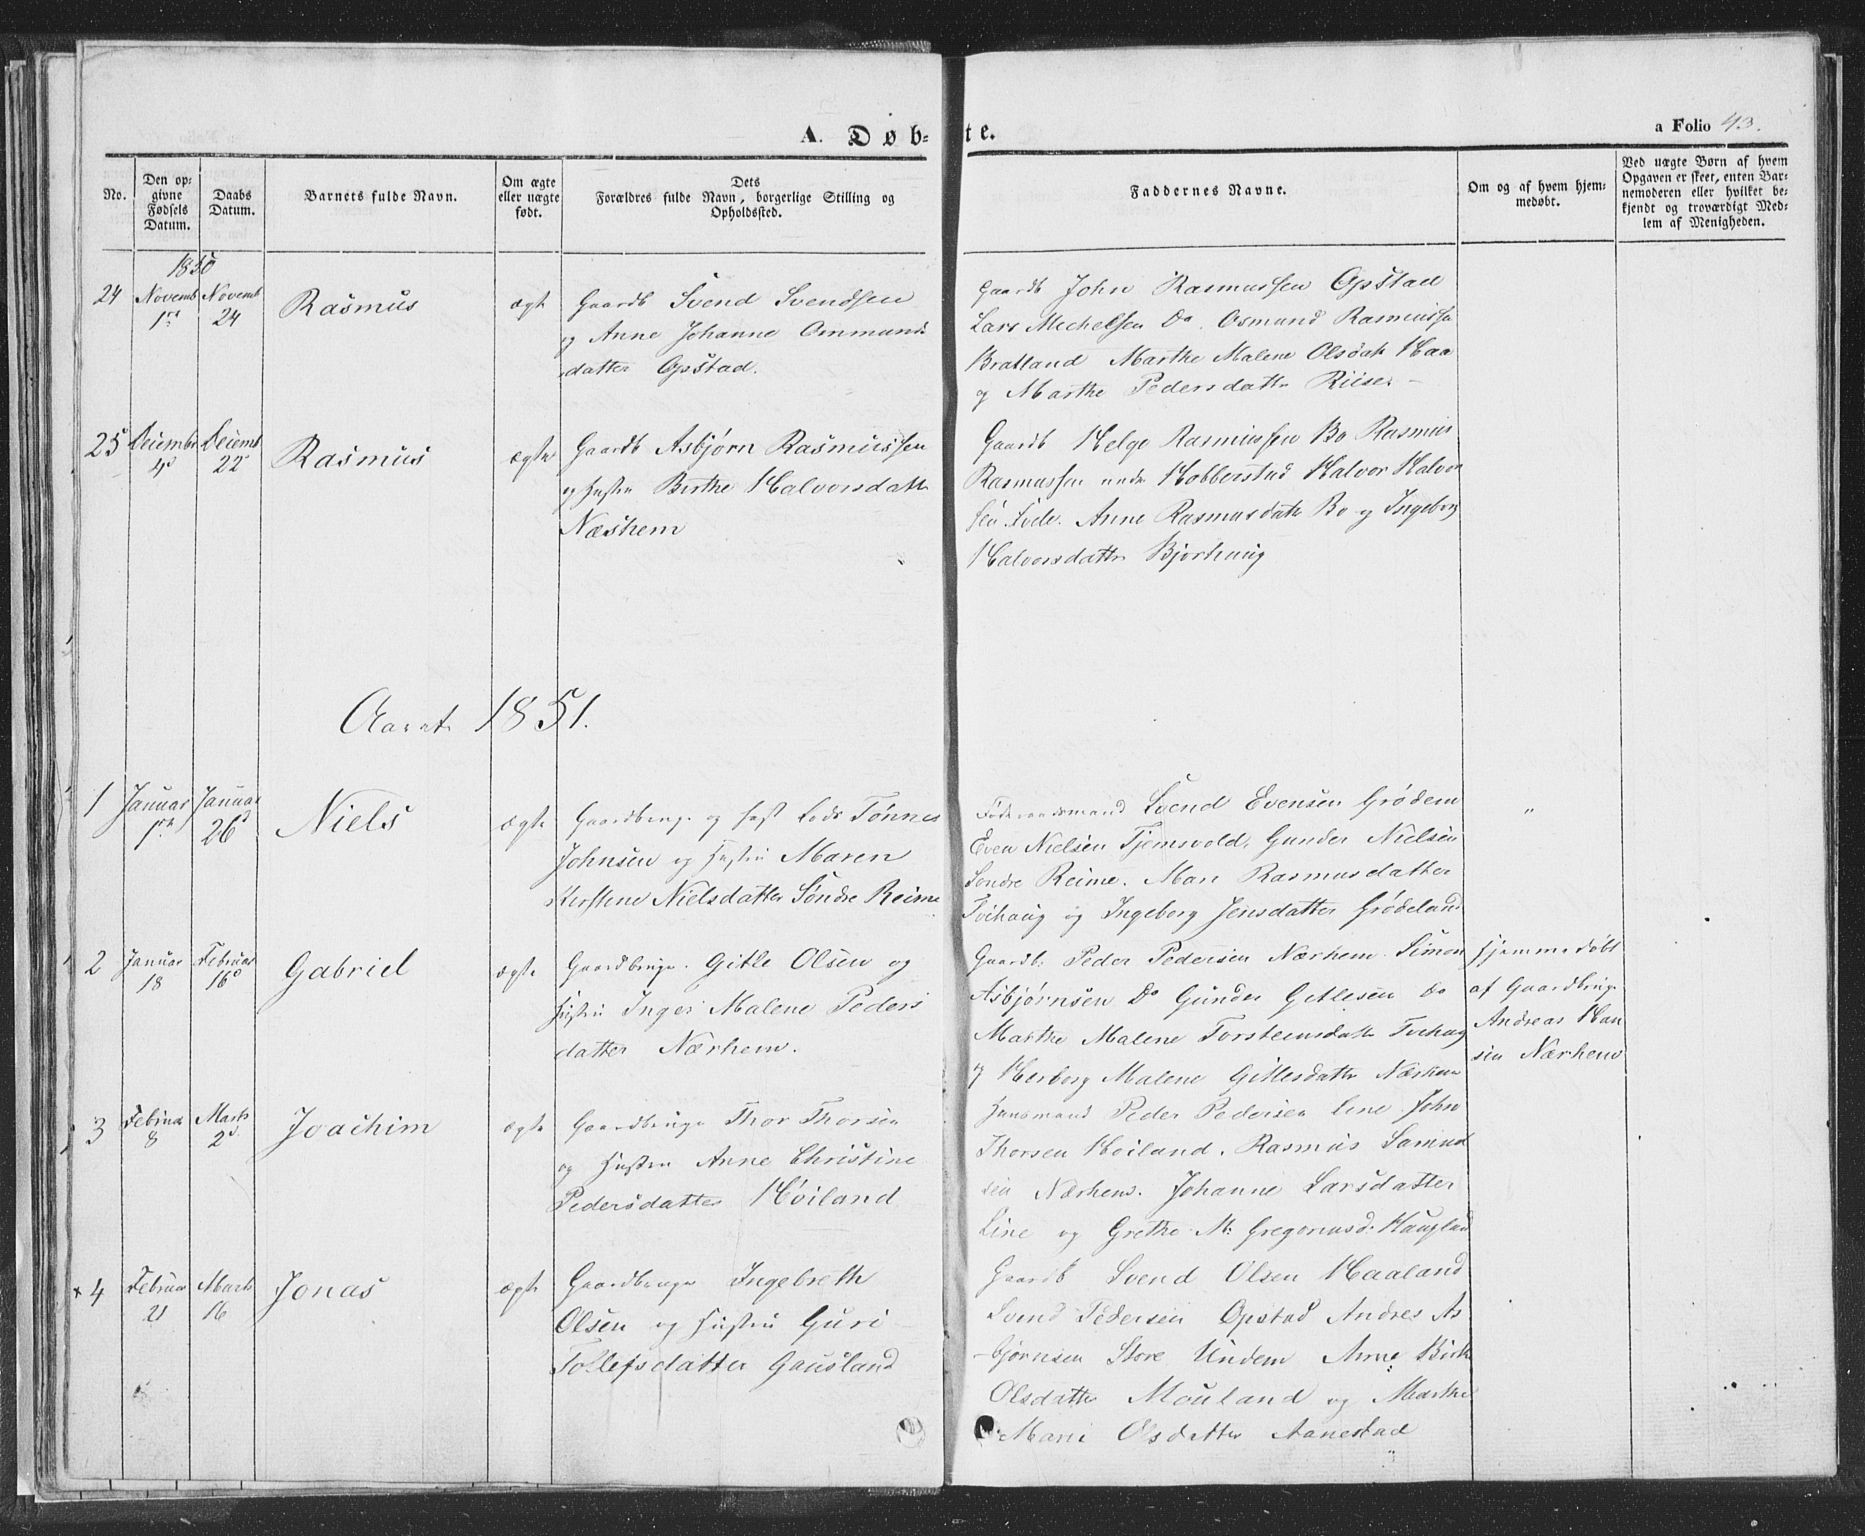 A. Døb-
te.
a Folio 43.
No.
Den op-
givne
Fødsels
Datum.
Daabs
Datum.
Barnets fulde Navn.
Om ægte
eller uægte
født.
Dets
Forældres fulde Navn, borgerlige Stilling og
Opholdssted.
Faddernes Navne.
Om og af hvem hjem-
medøbt.
Ved uægte Børn af hvem
Opgaven er skeet, enten Bar-
nemoderen eller hvilket be-
kjendt og troværdigt Med-
lem af Menigheden.
1850
24
Novemb
1ste
Novemb
24
Rasmus
ægt
Gaardb Svend Svendsen
og Anne Johanne Ommunds
datter Opstad.
Gaardb John Rasmussen Opstad
Lars Michelsen Do. Osmund Rasmussen
Bratland Marthe Malene Olsdatr Haa
og Marthe Pedersdattr Riise. -
25
Decembr
4d
Decemb
22
Rasmus
ægte
Gaardb Asbjørn Rasmussen
og Hustru Birthe Halvorsdattr
Næshem
Gaardb Helge Rasmussen Bo Rasmus
Rasmussen nedr Hobberstad Halvor Halvor
sen Tvede. Anne Rasmusdatr Bo og Ingeborg
Halvorsdattr Bjorhaug
Aaret 1851.
1
Januar
1ste
Januar
26d
Niels
ægte
Gaardbruge og Lods Tønnes
Johnsen og Hustru Maren
Kirstene Nielsdatter Søndre Reime
Føderaadsmand Svend Evensen Grødem
Even Nielsen Tjemsvold, Gunder Nielsen
Søndre Reime. Mari Rasmusdatter
Tvihaug og Ingeborg Jensdatter Grødeland
"
2
Januar
18
Februar
16d
Gabriel
ægte
Gaardbruge. Gitle Olsen og
Hustru Inger Malene Peders
datter Nærhem.
Gaardb: Peder Pedersen Nærhem Simon
Asbjørnsen Do Gunder Gitlesen do
Marthe Malene Torsteinsdatr Tvihaug
og Herborg Malene Gitlesdattr Nærhem
Hjemmedøbt
af Gaardbruge
Andreas Han
sen Nærhem
3
Februar
8
Marts
2d
Joachim
ægte
Gaardbruge Thor Thorsen
og Hustru Anne Christine
Pedersdatter Høiland
Huusmand Peder Pedersen Line John
Thorsen Høiland. Rasmus Samuel
sen Nærhem. Johanne Larsdatter
Line og Grethe M: Gregoriusd: Haugland
x 4
Februar
21
Marts
16
Jonas
ægte
Gaardbruge Ingebreth
Olsen og Hustru Guri
Tollefsdatter Gausland
Gaardb Svend Olsen Haaland
Svend Pedersen Opstad Andres As
bjørnsen Store Undem Anne Birthe
Olsdatter Mouland og Marthe
Marie Olsdatter Aanestad